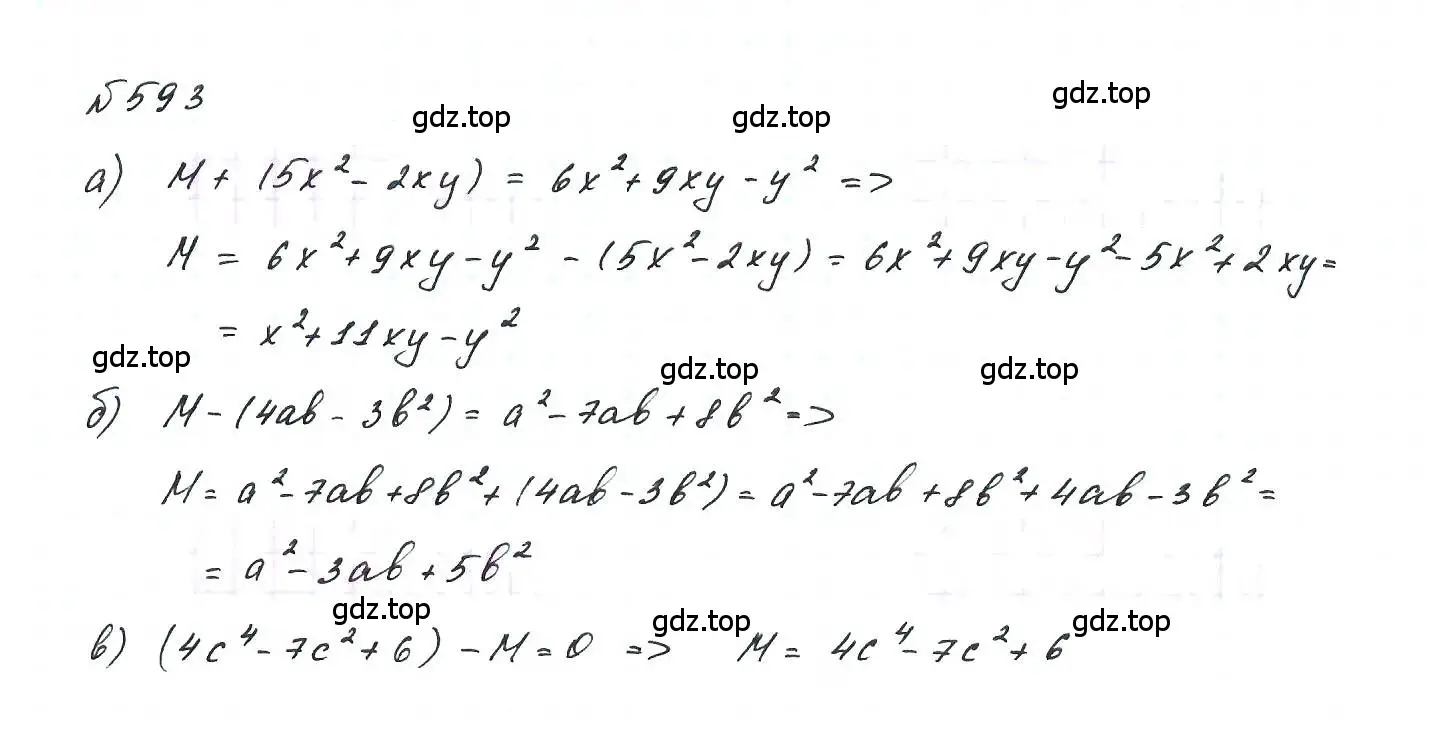 №593
gdz.top
gdz.top
gdz.top
а) М + (5x² - 2xy) = 6x² + 9xy - y² =>
М = 6x² + 9xy - y² - (5x² - 2xy) = 6x² + 9xy - y² - 5x² + 2xy =
= x² + 11xy - y²
gdz.top
gdz.top
gdz.top
б) М - (4ab - 3b²) = a² - 7ab + 8b² =>
М = a² - 7ab + 8b² + (4ab - 3b²) = a² - 7ab + 8b² + 4ab - 3b² =
= a² - 3ab + 5b²
gdz.top
gdz.top
gdz.top
в) (4c⁴ - 7c² + 6) - М = 0 => М = 4c⁴ - 7c² + 6